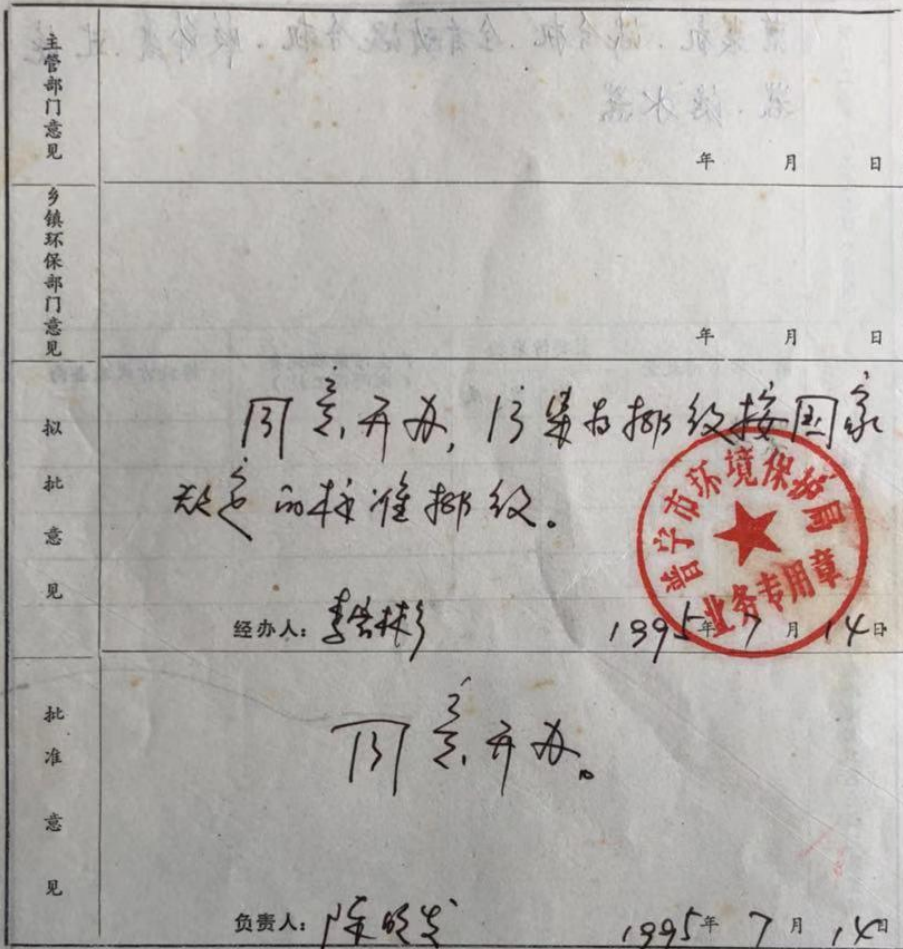 主管部门意见
年 月 日
乡镇环保部门意见
年 月 日
拟批意见
同意开办，污染物排放按国家
规定的标准排放。
普宁市环境保护局
业务专用章
经办人：
1995年7月14日
批准意见
同意开办。
负责人：陈
1995年7月14日